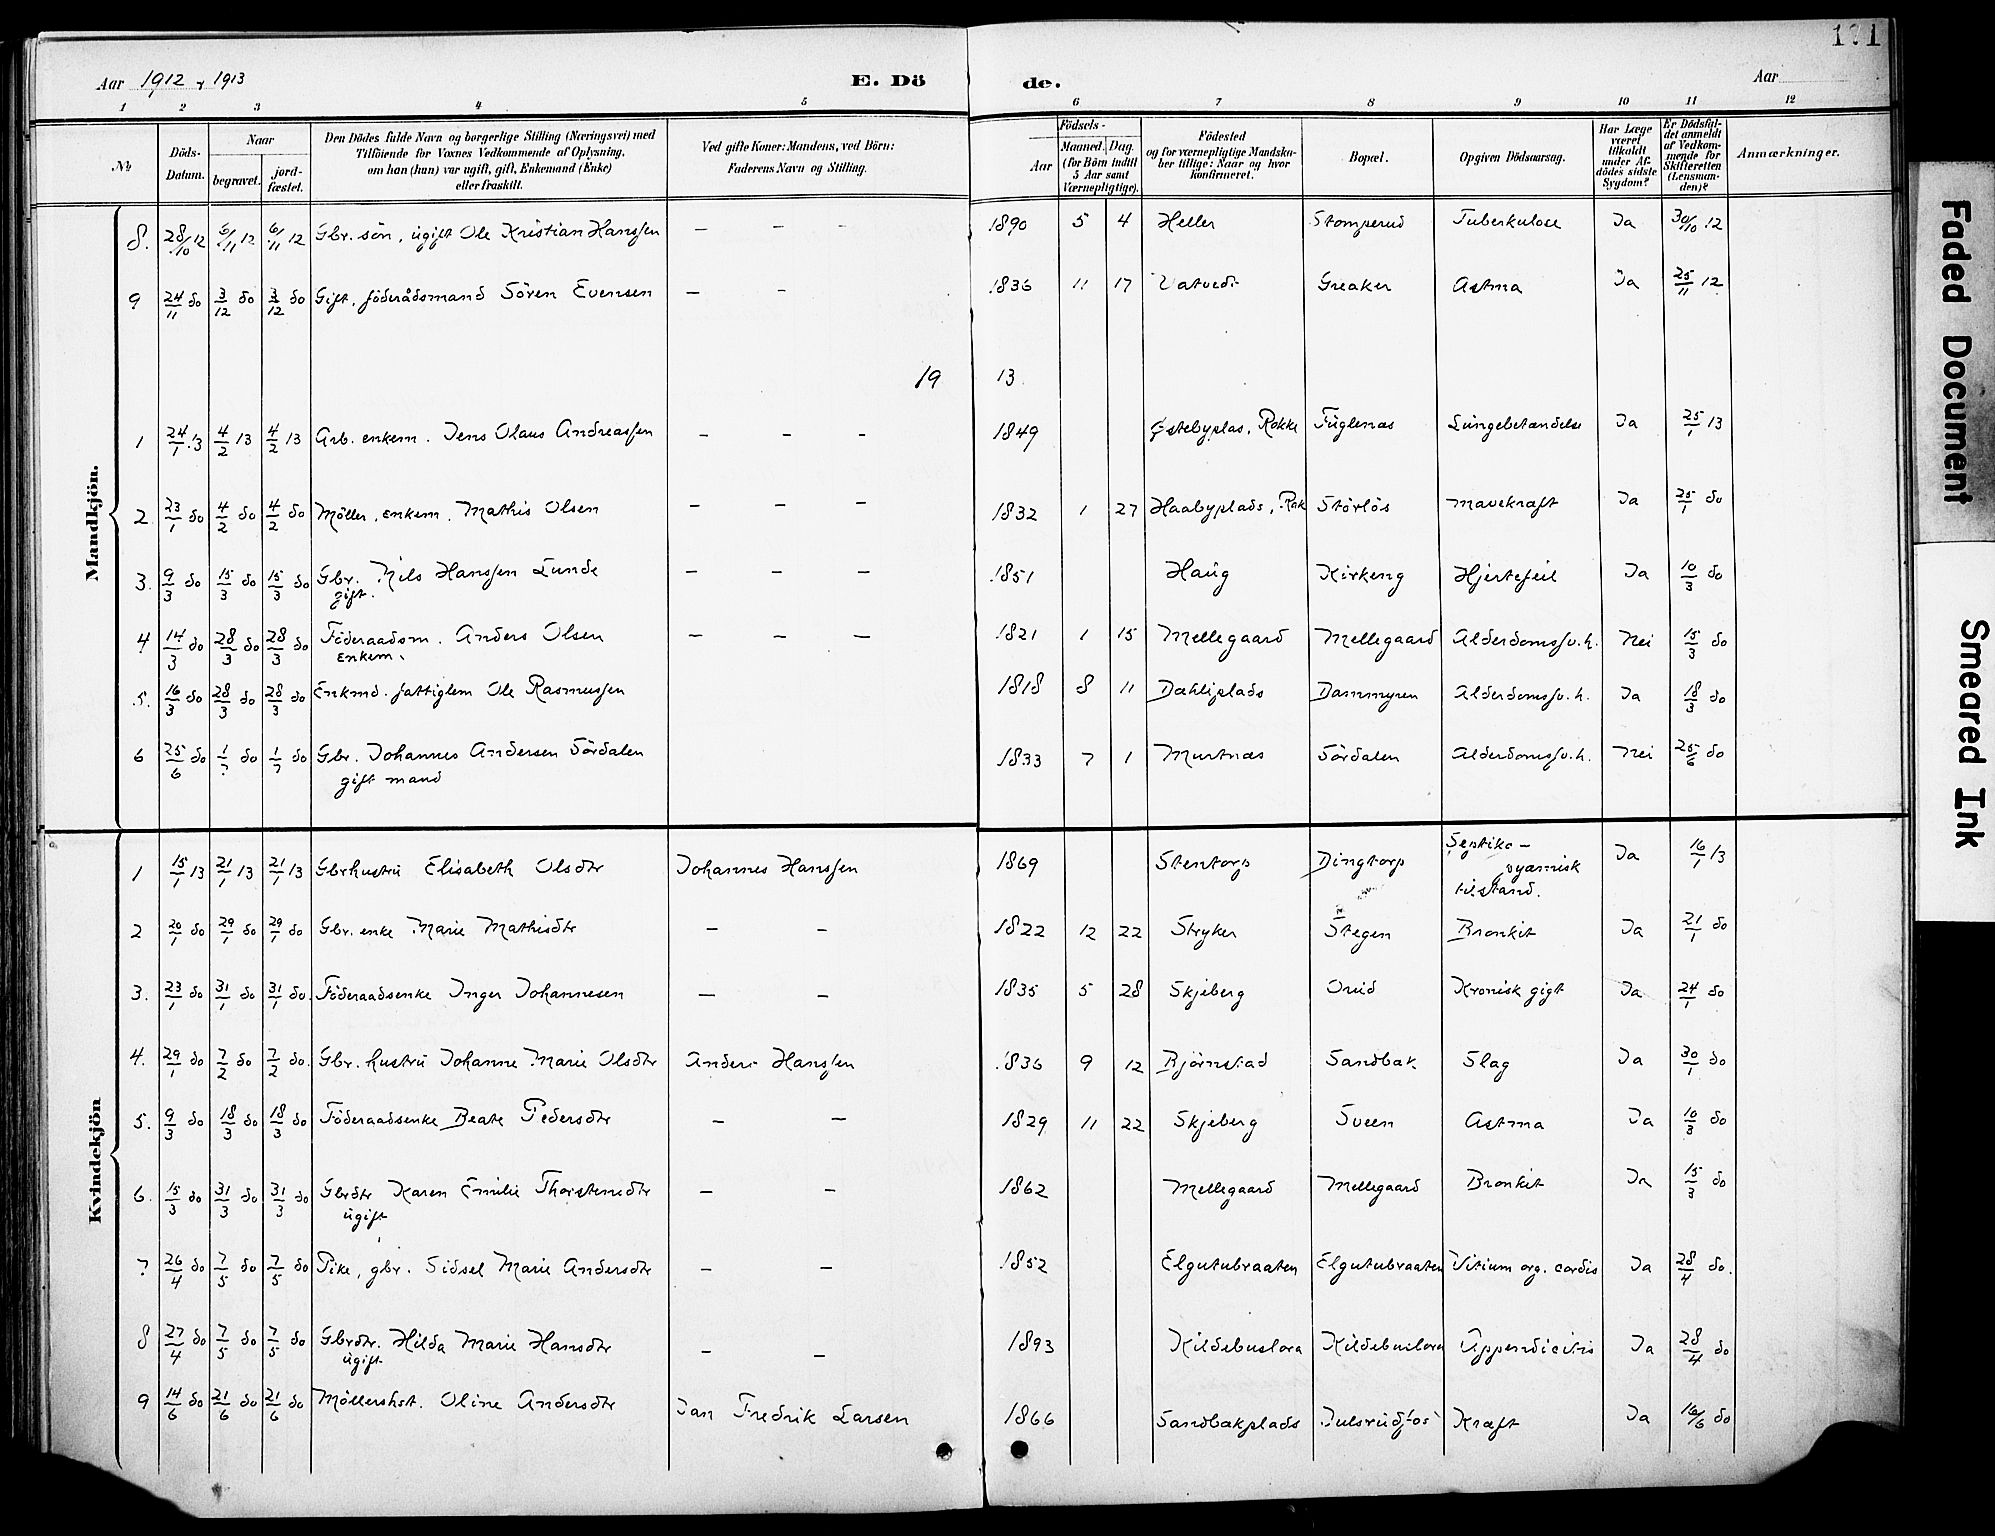 171
Aar 1912 & 1913 E. Dö de. Aar
1 2 3 4 5 6 7 8 9 10 11 12
№ Döds-Datum. Naar begravet. jord-fæstet. Den Dödes fulde Navn og borgerlige Stilling (Næringsvei) med Tilföiende for Voxnes Vedkommende af Oplysning, om han (hun) var ugift, gift, Enkemand (Enke) eller fraskilt. Ved gifte Koner: Mandens, ved Börn: Faderens Navn og Stilling. Födsels- Aar Maaned. Dag. (for Börn indtil 5 Aar samt Værnepligtige). Födested og for værnepligtige Mandskaber tillige: Naar og hvor konfirmeret. Bopæl. Opgiven Dödsaarsag. Har Læge været tilkaldt under Afdödes sidste Sygdom? Er Dödsfaldet anmeldt af Vedkommende for Skifteretten (Lensmanden)? Anmærkninger.
Mandkjön.
8. 28/10 12 6/11 12 6/11 12 Gbr. sön, ugift Ole Kristian Hanssen – – – 1890 5 4 Heller Stomperud Tuberkulose Ja 30/10 12
9 24/11 do 3/12 do 3/12 do Gift, föderådsmand Sören Evensen – – 1836 11 17 Vatvedt Greaker Astma Ja 25/11 12
19 13
1 24/1 13 4/2 13 4/2 13 Arb. enkem. Jens Olaus Andreassen – – – 1849 Østebyplas, Rokke Fuglenas Lungebetændelse Ja 25/1 13
2 23/1 do 4/2 do 4/2 do Möller, enkem. Mathis Olsen – – – 1832 1 27 Haabyplads, Rok Störlös Mavekræft Ja 25/1 do
3. 9/3 do 15/3 do 15/3 do Gbr. Nils Hanssen Lunde – – – 1851 Haug Kirkeng Hjertefeil Ja 10/3 do
gift.
4 14/3 do 28/3 do 28/3 do Föderaadsm. Anders Olsen – – – 1821 1 15 Mellegaard Mellegaard Alderdomssv.h. Nei 15/3 do
enkem.
5. 16/3 do 28/3 do 28/3 do Enkmd. fattiglem Ole Rasmussen 1818 8 11 Dahliplads Dammyren Alderdomssv.h. Ja 18/3 do
6 25/6 do 1/7 do 1/7 do Gbr. Johannes Andersen Sördalen 1833 7 1 Murtnæs Sördalen Alderdomssv.h. Nei 25/6 do
gift mand
Kvindekjön
1 15/1 13 21/1 13 21/1 13 Gbrhustru Elisabeth Olsdtr Johannes Hanssen 1869 Stentorp Dingtorp Septiko- Ja 16/1 13
pyæmisk
tilstand.
2 20/1 do 29/1 do 29/1 do Gbr. enke Marie Mathisdtr – – 1822 12 22 Stryker Stegen Bronkit Ja 21/1 do
3. 23/1 do 31/1 do 31/1 do. Föderaadsenke Inger Johannesen – – 1835 5 28 Skjeberg Ovid Kronisk gigt Ja 24/1 do
4. 29/1 do 7/2 do 7/2 do. Gbr. hustru Johanne Marie Olsdtr Anders Hanssen 1836 9 12 Björnstad Sandbak Slag Ja 30/1 do
5. 9/3 do 18/3 do 18/3 do Föderaadsenke Beate Pedersdtr – – 1829 11 22 Skjeberg Sveen Astma Ja 10/3 do
6. 15/3 do 31/3 do. 31/3 do Gbrdtr Karen Emilie Thorstensdtr – – 1862 Mellegaard Mellegaard Bronkit Ja 15/3 do
ugift
7 26/4 do 7/5 do 7/5 do Pike, gbr. Sidsel Marie Andersdtr – – 1852 Elgutubraaten Elgutubraaten Vitium org. cordis Ja 28/4 do.
8 27/4 do 7/5 do 7/5 do Gbrdtr. Hilda Marie Hansdtr – – 1893 Kildebuslora Kildebuslora Appendicitis Ja 28/4 do
ugift
9 14/6 do 21/6 do 21/6 do Möllershst. Oline Andersdtr Jan Fredrik Larsen 1866 Sandbakplads Julsrudfos Kræft Ja 16/6 do
Faded Document
Smeared Ink